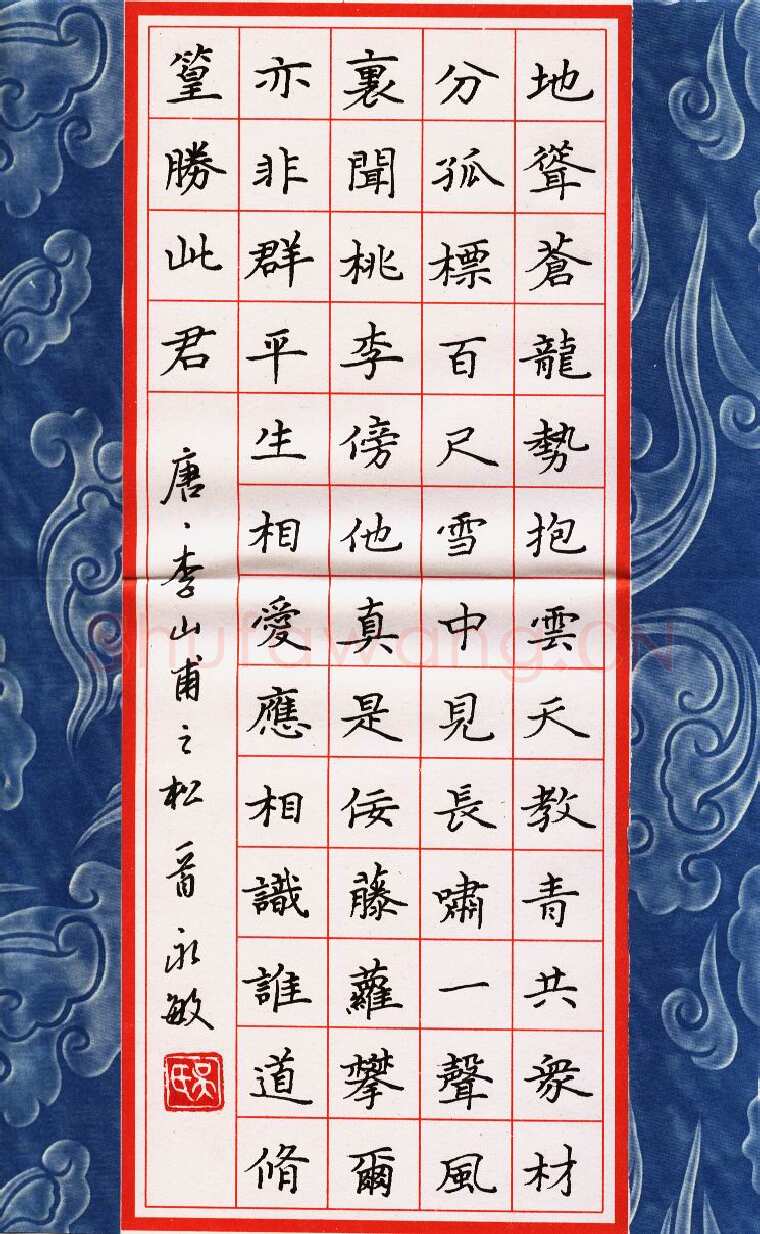 地聳蒼龍勢抱雲天教青共衆材
分孤標百尺雪中見長嘯一聲風
裏聞桃李傍他真是佞藤蘿攀爾
亦非群平生相愛應相識誰道脩
篁勝此君
唐、李山甫之松 晋永敏
shufawang.CN